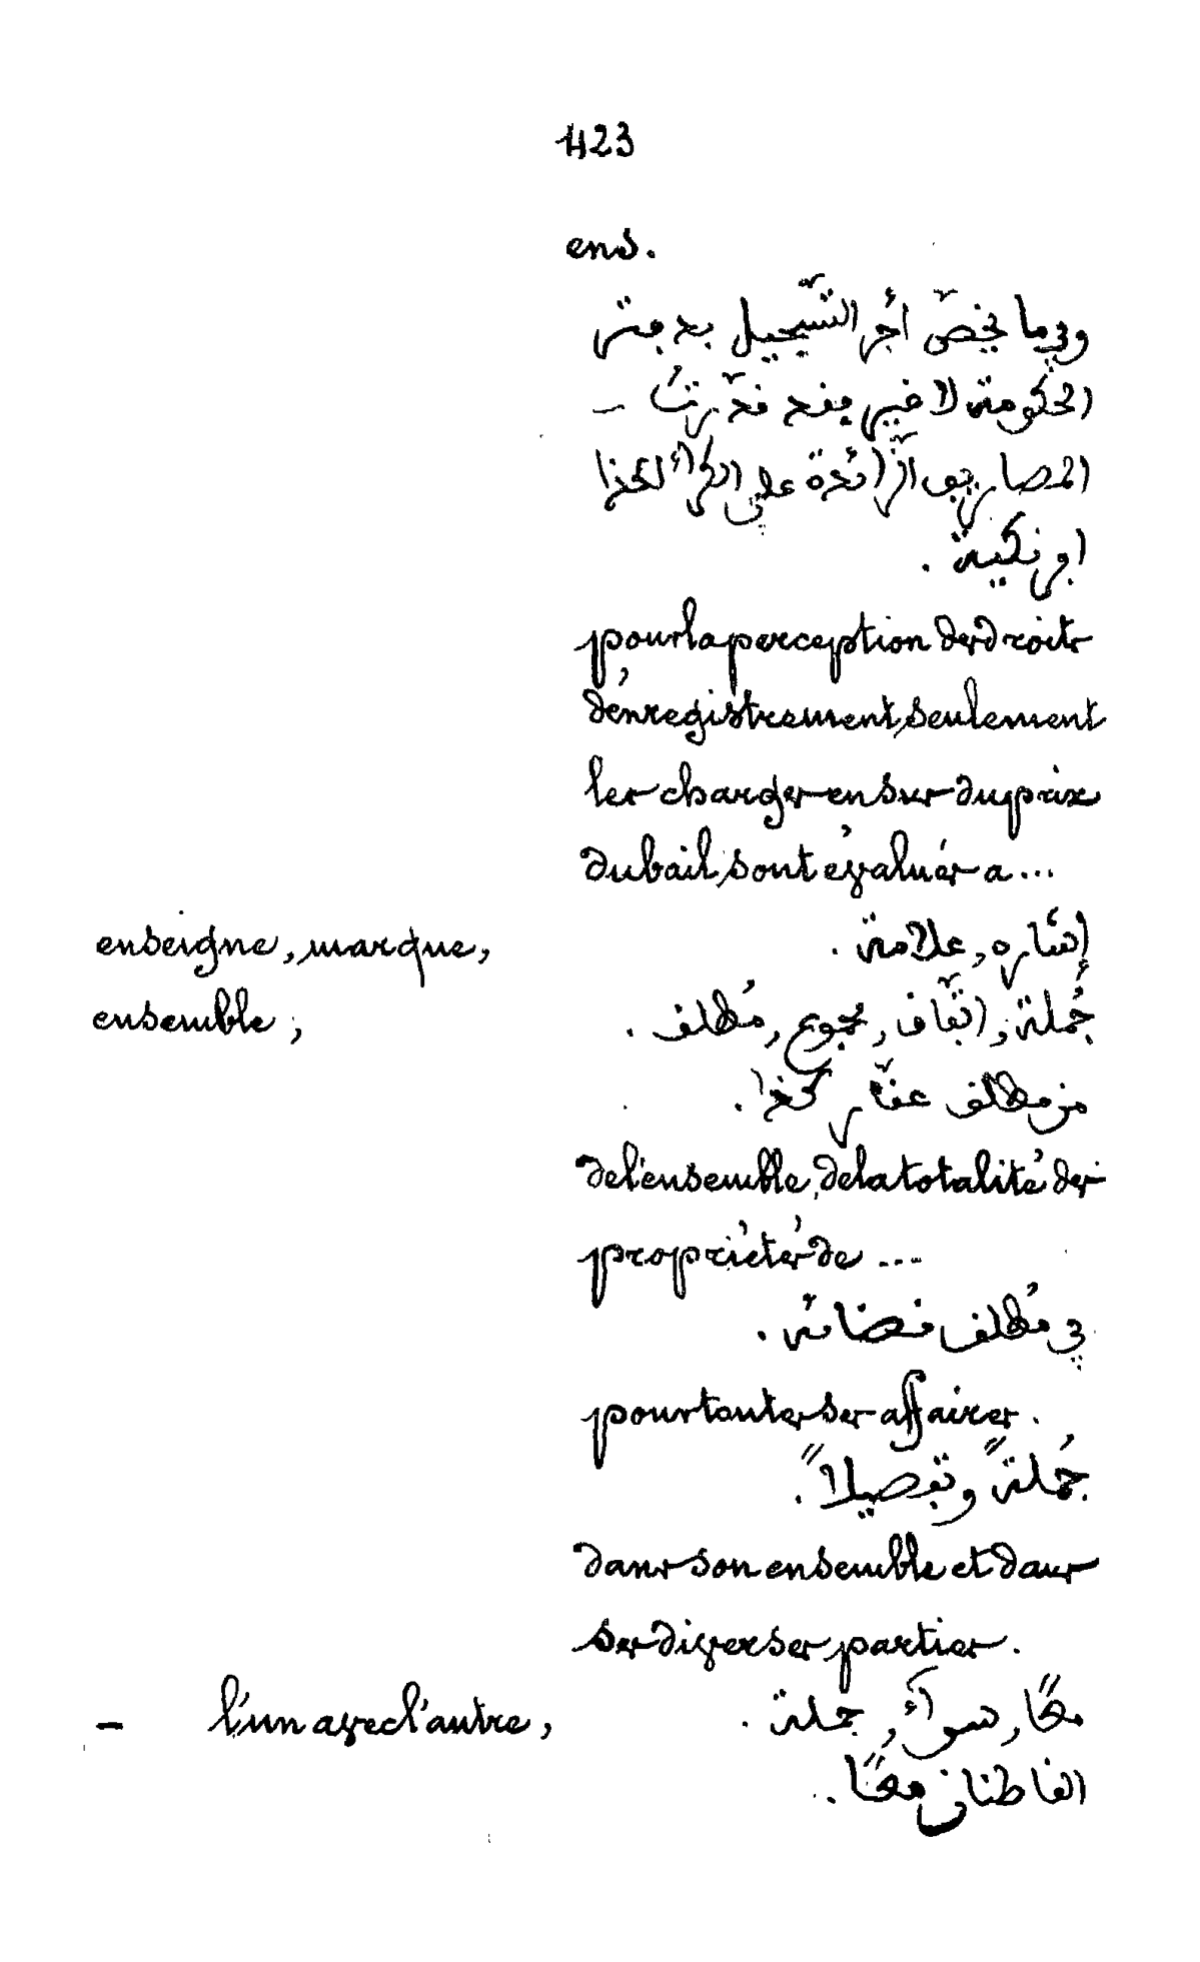 423
ens.
وفيما يخصّ أجر التّسجيل بدفتر
الحكومة لا غير فقد قدّرتُ –
المصاريف الزّائدة على الكراء لكذا
افرنكية .
pour la perception des droits
d'enregistrement, seulement
les charges en sus du prix
du bail, sont évalués a ...
enseigne, marque, إشاره, علامة .
ensemble, جُملة, اتّفاق, مجموع, مُطلق .
من مطلق عقّار كذا .
de l'ensemble, de la totalité des
propriétés de ....
في مُطلق قضائه .
pour toutes ses affaires .
جُملةً وتفصيلاً .
dans son ensemble et dans
ses diverses parties .
– l'un avec l'autre, معًا, سوآء, جملة .
القاطنان معًا .